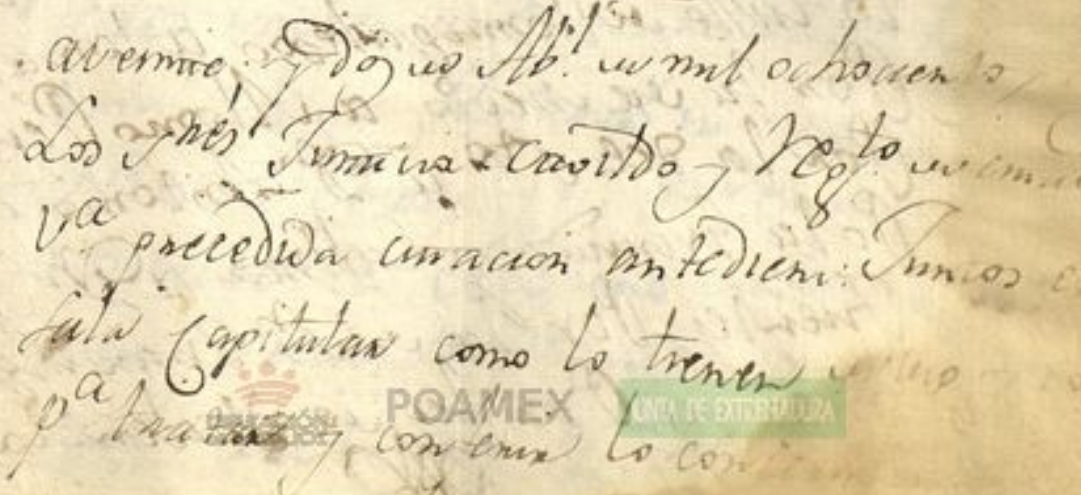 aveinte, y dos de Ab.l de mil ochocientos,
Los Sres Justicia cavildo y Regto de
va precedida citacion antediem: Juntos e
sala Capitular como lo tienen
pa tratar y conferir lo
POAMEX
JUNTA DE EXTREMADURA